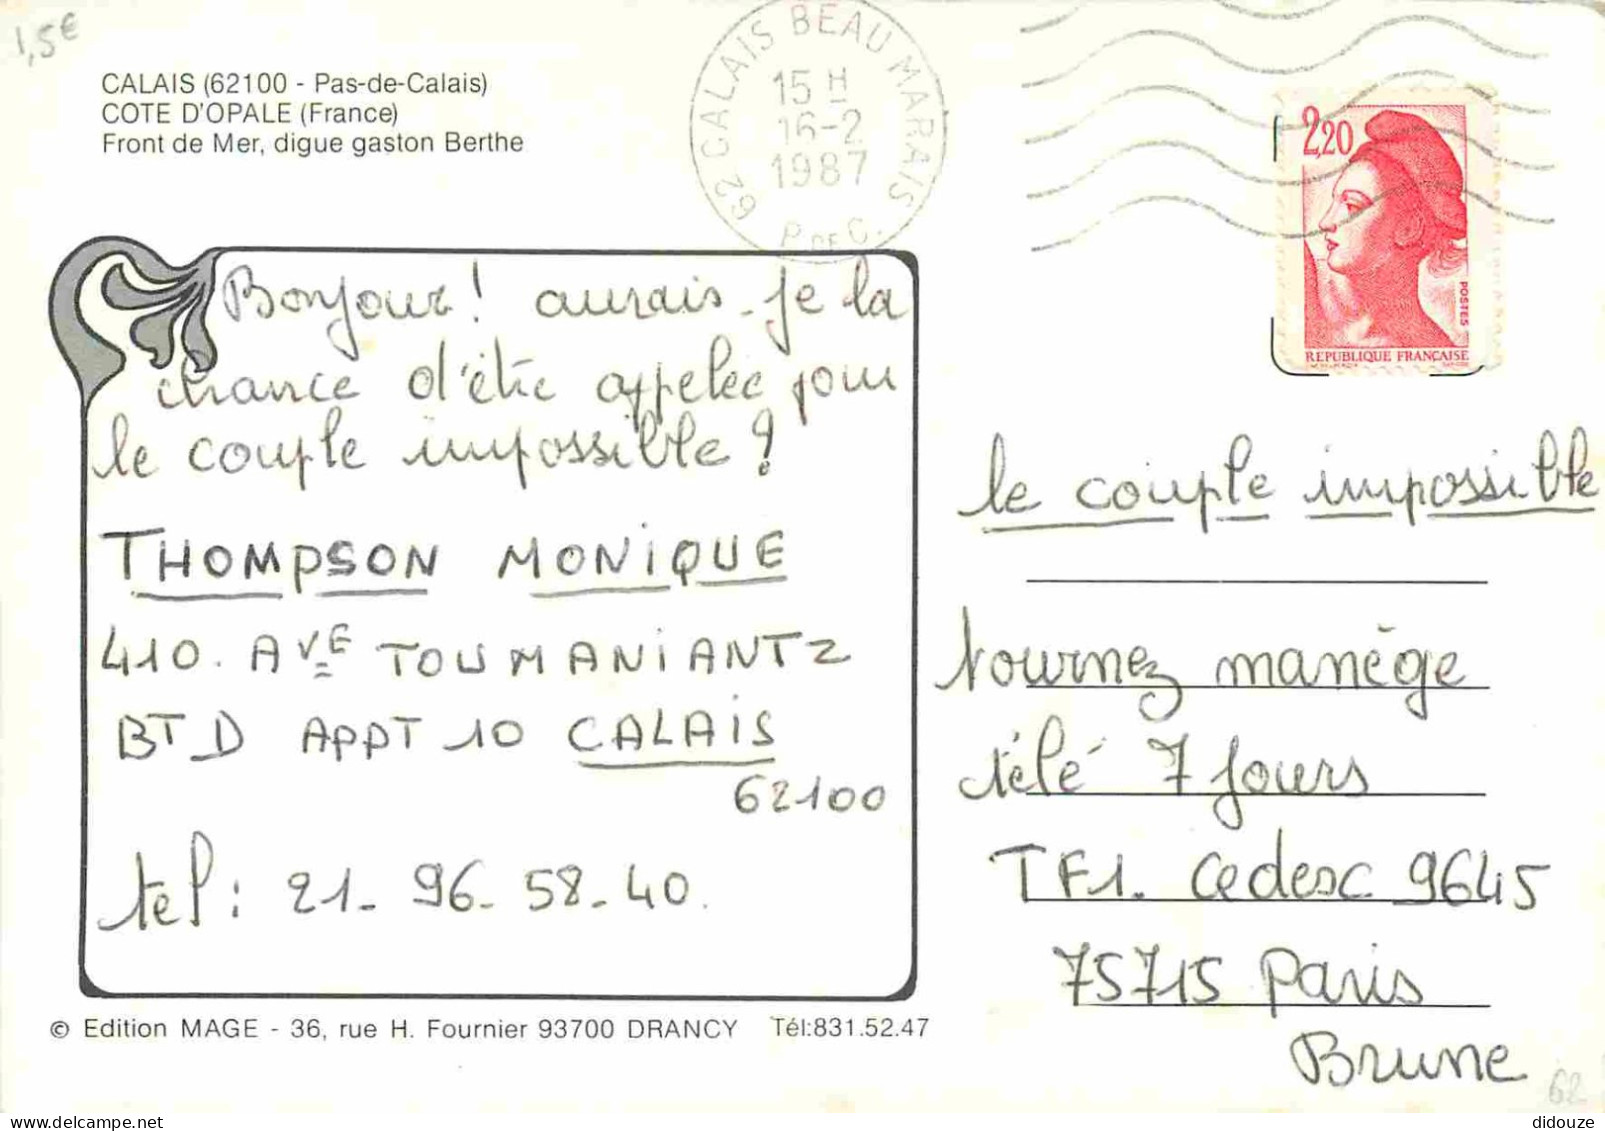 1,5€
CALAIS (62100 - Pas-de-Calais)
COTE D'OPALE (France)
Front de Mer, digue gaston Berthe
62 CALAIS BEAU MARAIS
15 H
16-2
1987
P. DE C.
2,20
POSTES
REPUBLIQUE FRANÇAISE
Bonjour! aurais-je la
chance d'être appelée pour
le couple impossible?
THOMPSON MONIQUE
410. AVE TOUMANIANTZ
BT D APPT 10 CALAIS
62100
tel: 21-96-58-40.
le couple impossible
tournez manège
télé 7 Jours
TF1. Cedesc 9645
75715 Paris
Brune
© Edition MAGE - 36, rue H. Fournier 93700 DRANCY Tél:831.52.47
62
didouze